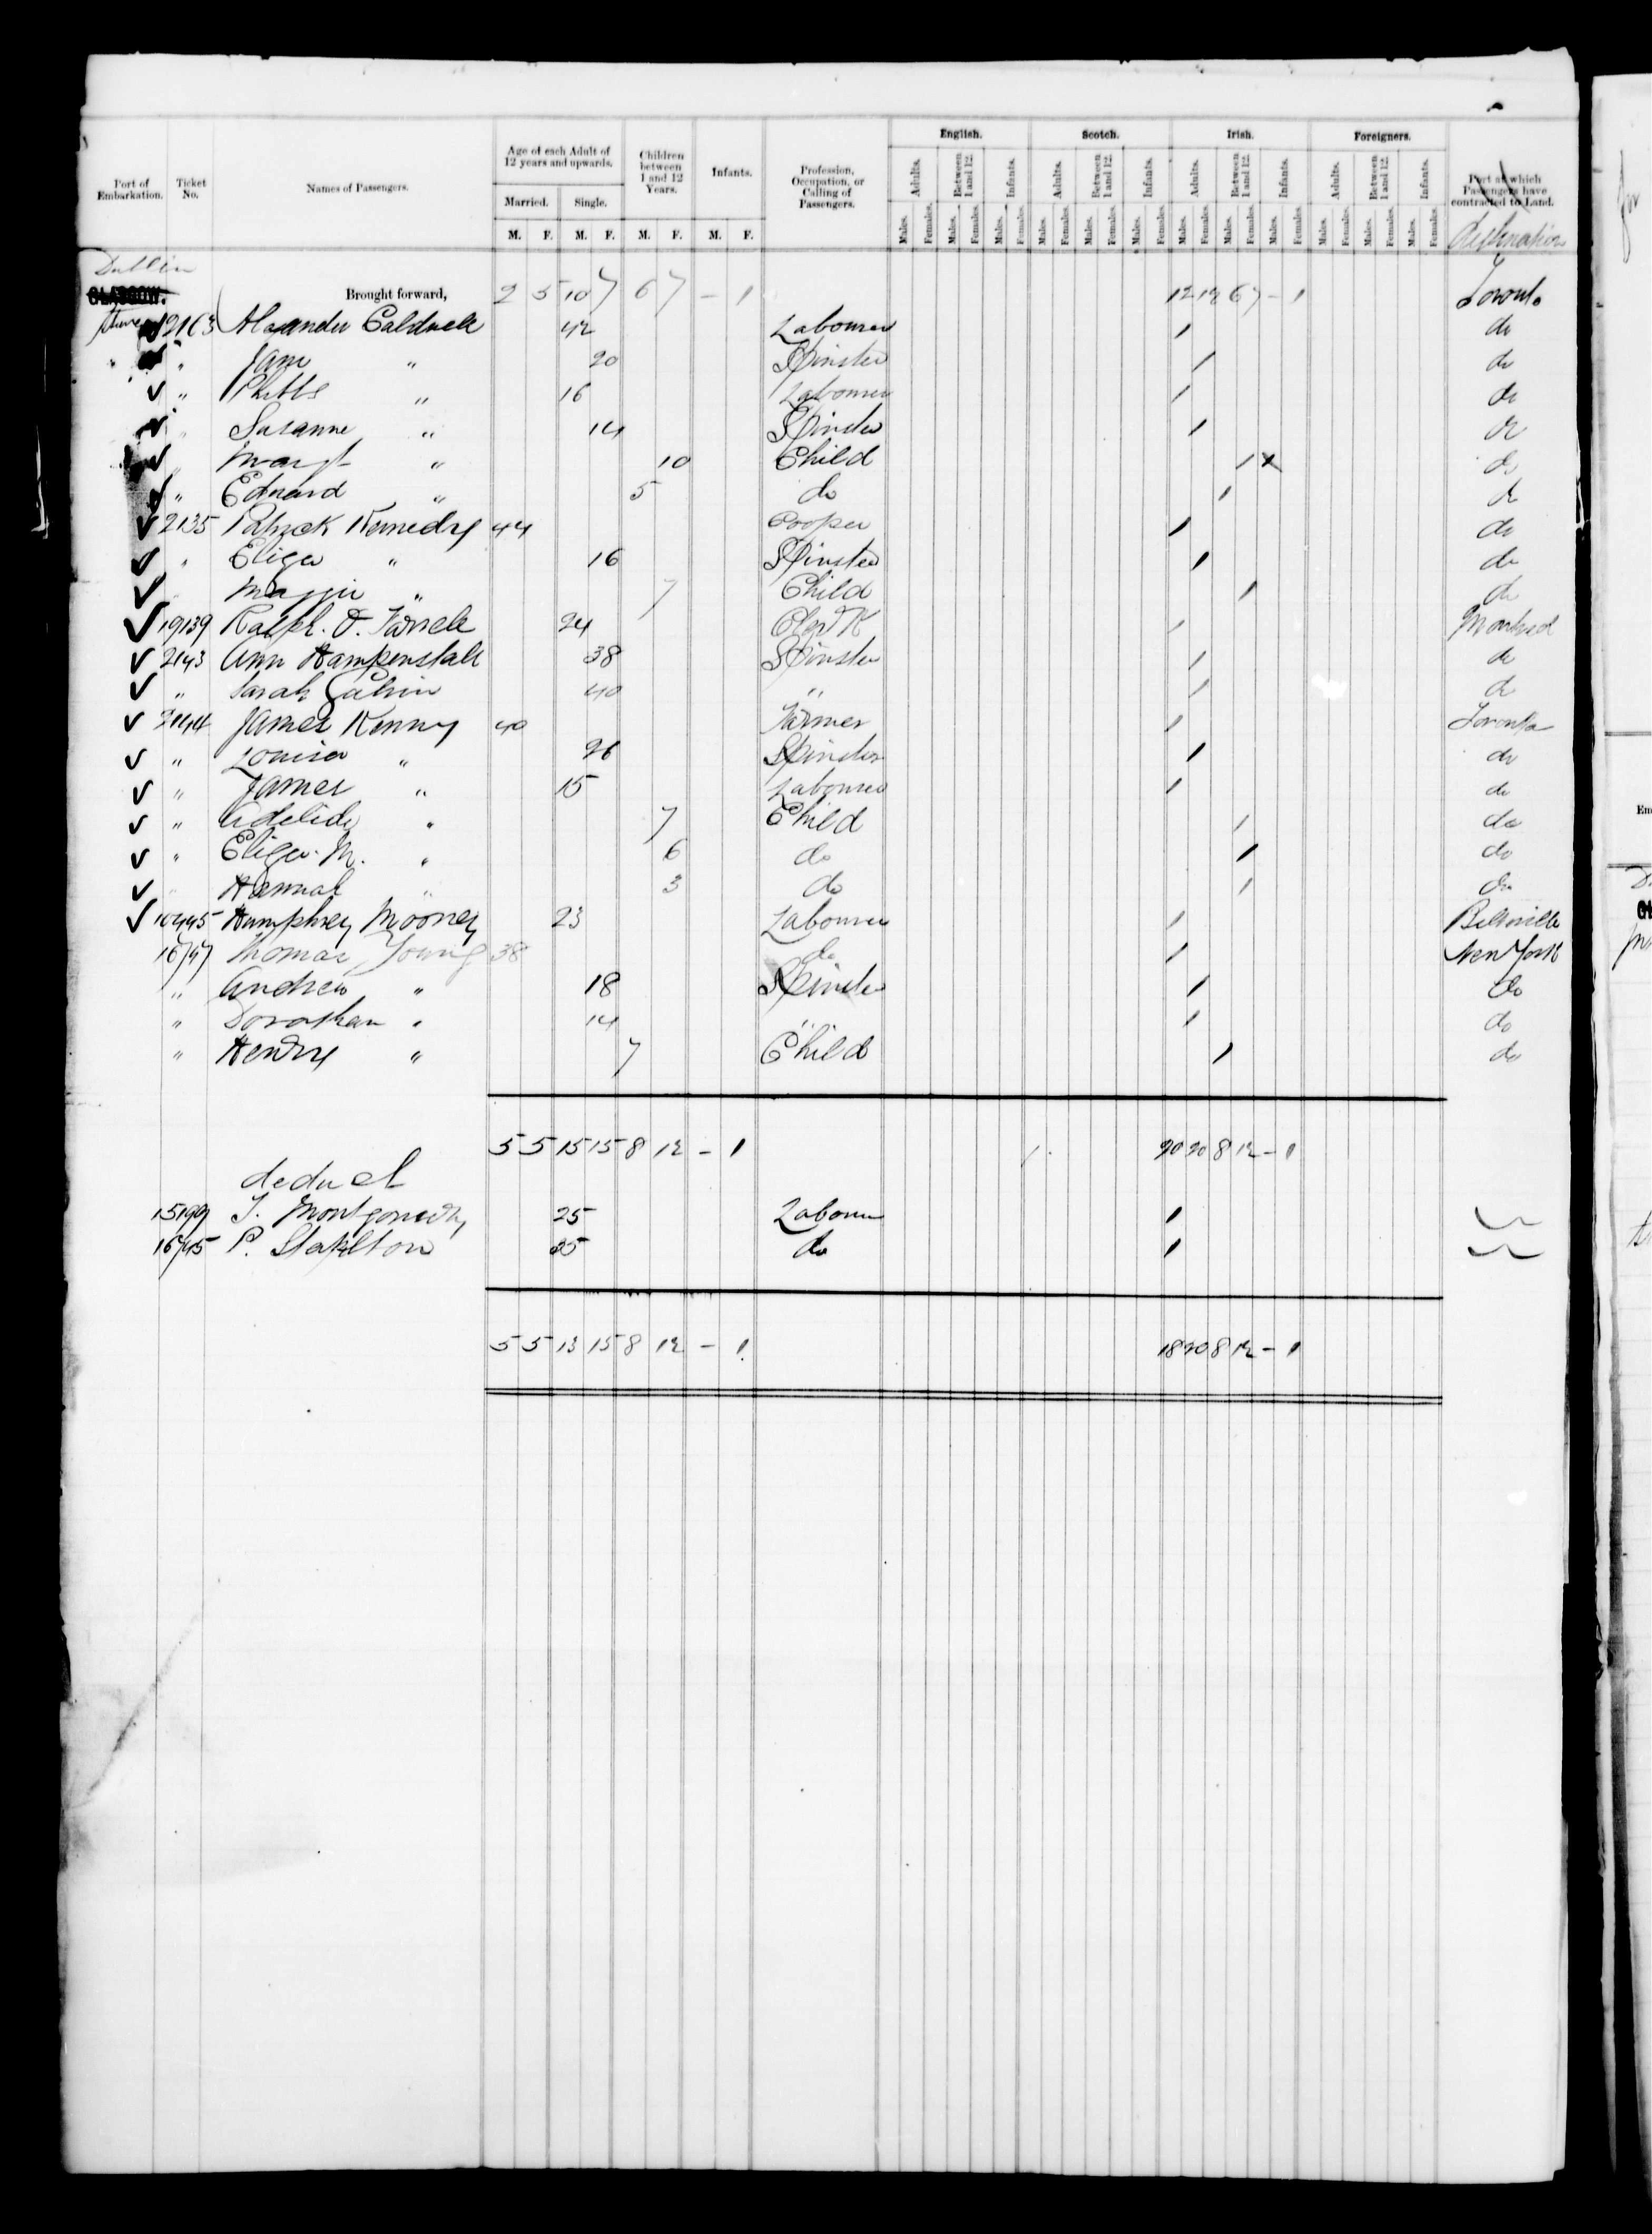 Port of Embarkation. Ticket No. Names of Passengers. Age of each Adult of 12 years and upwards. Children between 1 and 12 Years. Infants. Profession, Occupation, or Calling of Passengers. English. Scotch. Irish. Foreigners. Port at which Passengers have contracted to Land.
Married. Single. Adults. Between 1 and 12. Infants. Adults. Between 1 and 12. Infants. Adults. Between 1 and 12. Infants. Adults. Between 1 and 12. Infants.
M. F. M. F. M. F. M. F. Males. Females. Males. Females. Males. Females. Males. Females. Males. Females. Males. Females. Males. Females. Males. Females. Males. Females. Males. Females. Males. Females. Males. Females. Destination
Dublin
GLASGOW. Brought forward, 2 5 10 7 6 7 – 1 12 12 6 7 – 1 Toronto
12163 Alexander Caldwell 42 Labourer 1 do
" Jane " 20 Spinster 1 do
" " 16 Labourer 1 do
" Susanne " 14 Spinster 1 do
" Margt " 10 Child 1 x do
" Edward " 5 do 1 do
2135 Patrick Kennedy 44 Cooper 1 do
" Eliza " 16 Spinster 1 do
Maggie " 7 Child 1 do
19139 Ralph. O. Farrell 24 Clerk 1 Montreal
2143 Ann Hampenstall 38 Spinster 1 do
" Sarah Galvin 40 " 1 do
2144 James Kenny 40 Farmer 1 Toronto
" Louisa " 26 Spinster 1 do
" James " 15 Labourer 1 do
" Adelide " 7 Child 1 do
" Eliza. M. " 6 do 1 do
" Hannah " 3 do 1 do
10445 Humphrey Mooney 23 Labourer 1 Belleville
16747 Thomas Young 38 do 1 New York
" Andrew " 18 Spinster 1 do
" " 14 " 1 do
" Henry " 7 Child 1 do
5 5 15 15 8 12 – 1 20 20 8 12 – 1
deduct
15199 J. Montgomery 25 Labour 1
16745 P. Stapleton 25 do 1
5 5 13 15 8 12 – 1 18 20 8 12 – 1